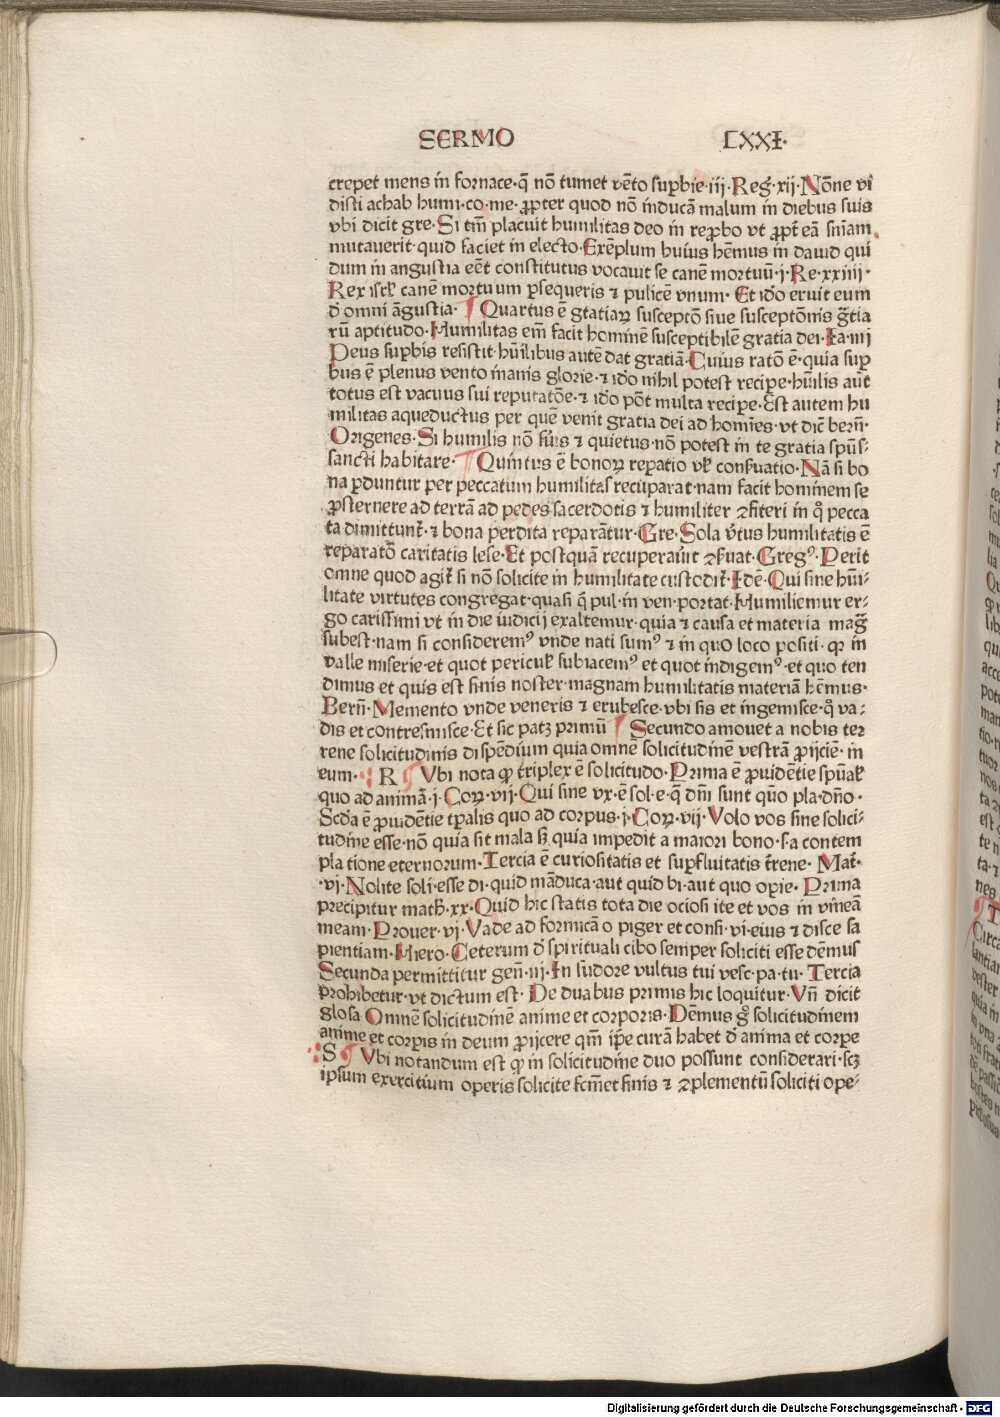 SERMO LXXI·
crepet mens in fornace·q̄ nō tumet vēto suꝑbie·iij·Reg̃·xij·Nōne vi
disti achab humi·co·me·ꝓpter quod nō inducā malum in diebus suis
vbi dicit gre·Si tm̄ placuit humilitas deo in reꝓbo vt ꝓpt̄ eā sn̄iam
mutauerit·quid faciet in electo·Exēplum huius hēmus in dauid qui
dum in angustia eēt constitutus vocauit se canē mortuū·j·Re·xxiiij·
Rex isrł canē mortuum ꝑsequeris ⁊ pulicē vnum· Et id̄o eruit eum
d̄ omni āgustia· ¶ Quartus ē gratiaꝝ susceptō siue susceptōnis gr̄tia
rū aptitudo·Humilitas em̄ facit hominē susceptibilē gratia dei·Ia·iiij
Deus suꝑbis resistit·hūilibus autē dat gratiā·Cuius ratō ē·quia suꝑ
bus ē plenus vento inanis glorie·⁊ id̄o nihil potest reciꝑe·hūilis aūt
totus est vacuus sui reputatōe·⁊ id̄o pōt multa reciꝑe·Est autem hu
militas aqueductus per quē venit gratia dei ad homīes·vt dic̄ bern̄·
Origenes·Si humilis nō fūis ⁊ quietus·nō potest in te gratia spūs⸗
sancti habitare· ¶ Quintus ē bonoꝝ reꝑatio vł conſuatio·Nā si bo
na ꝑduntur per peccatum humilitas recuparat·nam facit hominem se
ꝓsternere ad terrā ad pedes sacerdotis ⁊ humiliter ꝯfiteri in q̊ pecca
ta dimittunt̄·⁊ bona perdita reparātur·Gre·Sola v̄tus humilitatis ē
reparatō caritatis lese·Et postquā recuperauīt ꝯſuat·Greg⁹·Perit
omne quod agit̄ si nō solicite in humilitate custodit̄·Idē·Qui sine hūi⸗
litate virtutes congregat·quasi q̄ pul·in ven·portat·Humiliemur er⸗
go carissimi vt in die iudicij exaltemur·quia ⁊ causa et materia mag̃
subest·nam si considerem⁹ vnde nati sum⁹ ⁊ in quo loco positi·qꝛ in
valle miserie·et quot pericuł subiacem⁹ et quot indigem⁹·et quo ten
dimus et quis est finis noster·magnam humilitatis materiā hēmus·
Bern̄·Memento vnde veneris ⁊ erubesce·vbi sis et ingemisce·q̊ va⸗
dis et contremisce·Et sic patꝫ primū ¶ Secundo amouet a nobis ter
rene solicitudinis dispēdium quia omnē solicitudinē vestrā ꝓijciē· in
eum· R ¶ Vbi nota ꝙ triplex ē solicitudo·Prima ē ꝓuidētie spūał
quo ad animā·j·Coꝝ·vij·Qui sine vx·ē sol·e·q̄ dn̄i sunt quō pla·dn̄o·
Scd̄a ē ꝓuidētie tꝑalis quo ad corpus·j·Coꝝ·vij·Volo vos sine solici⸗
tudine esse·nō quia sit mala sꝫ quia impedit a maiori bono·s·a contem
pla tione eternorum·Tercia ē curiositatis et suꝑfluitatis t̄rene· Mat̄·
·vj·Nolite soli·esse di·quid māduca·aut quid bi·aut quo oꝑie· Prima
precipitur math̄·xx·Quid hic statis tota die ociosi ite et vos in vineā
meam·Prouer·vj·Vade ad formicā o piger et consi·vi·eius ⁊ disce sa
pientiam·Hiero·Ceterum d̄ spirituali cibo semper soliciti esse dēmus
Secunda permittitur gen̄·iij·In sudore vultus tui vesc·pa·tu· Tercia
prohibetur·vt dictum est· De duabus primis hic loquitur·Vn̄ dicit
glosa Omnē solicitudinē anime et corporis·Dēmus g̊ solicitudinem
anime et corpis in deum ꝓijcere qm̄ ip̄e curā habet d̄ anima et corpe
S ¶ Vbi notandum est ꝙ in solicitudine duo possunt considerari·scꝫ
ipsum exercitium operis solicite fcm̄et finis ⁊ ꝯplementū soliciti ope⸗
Digitalisierung gefördert durch die Deutsche Forschungsgemeinschaft - DFG